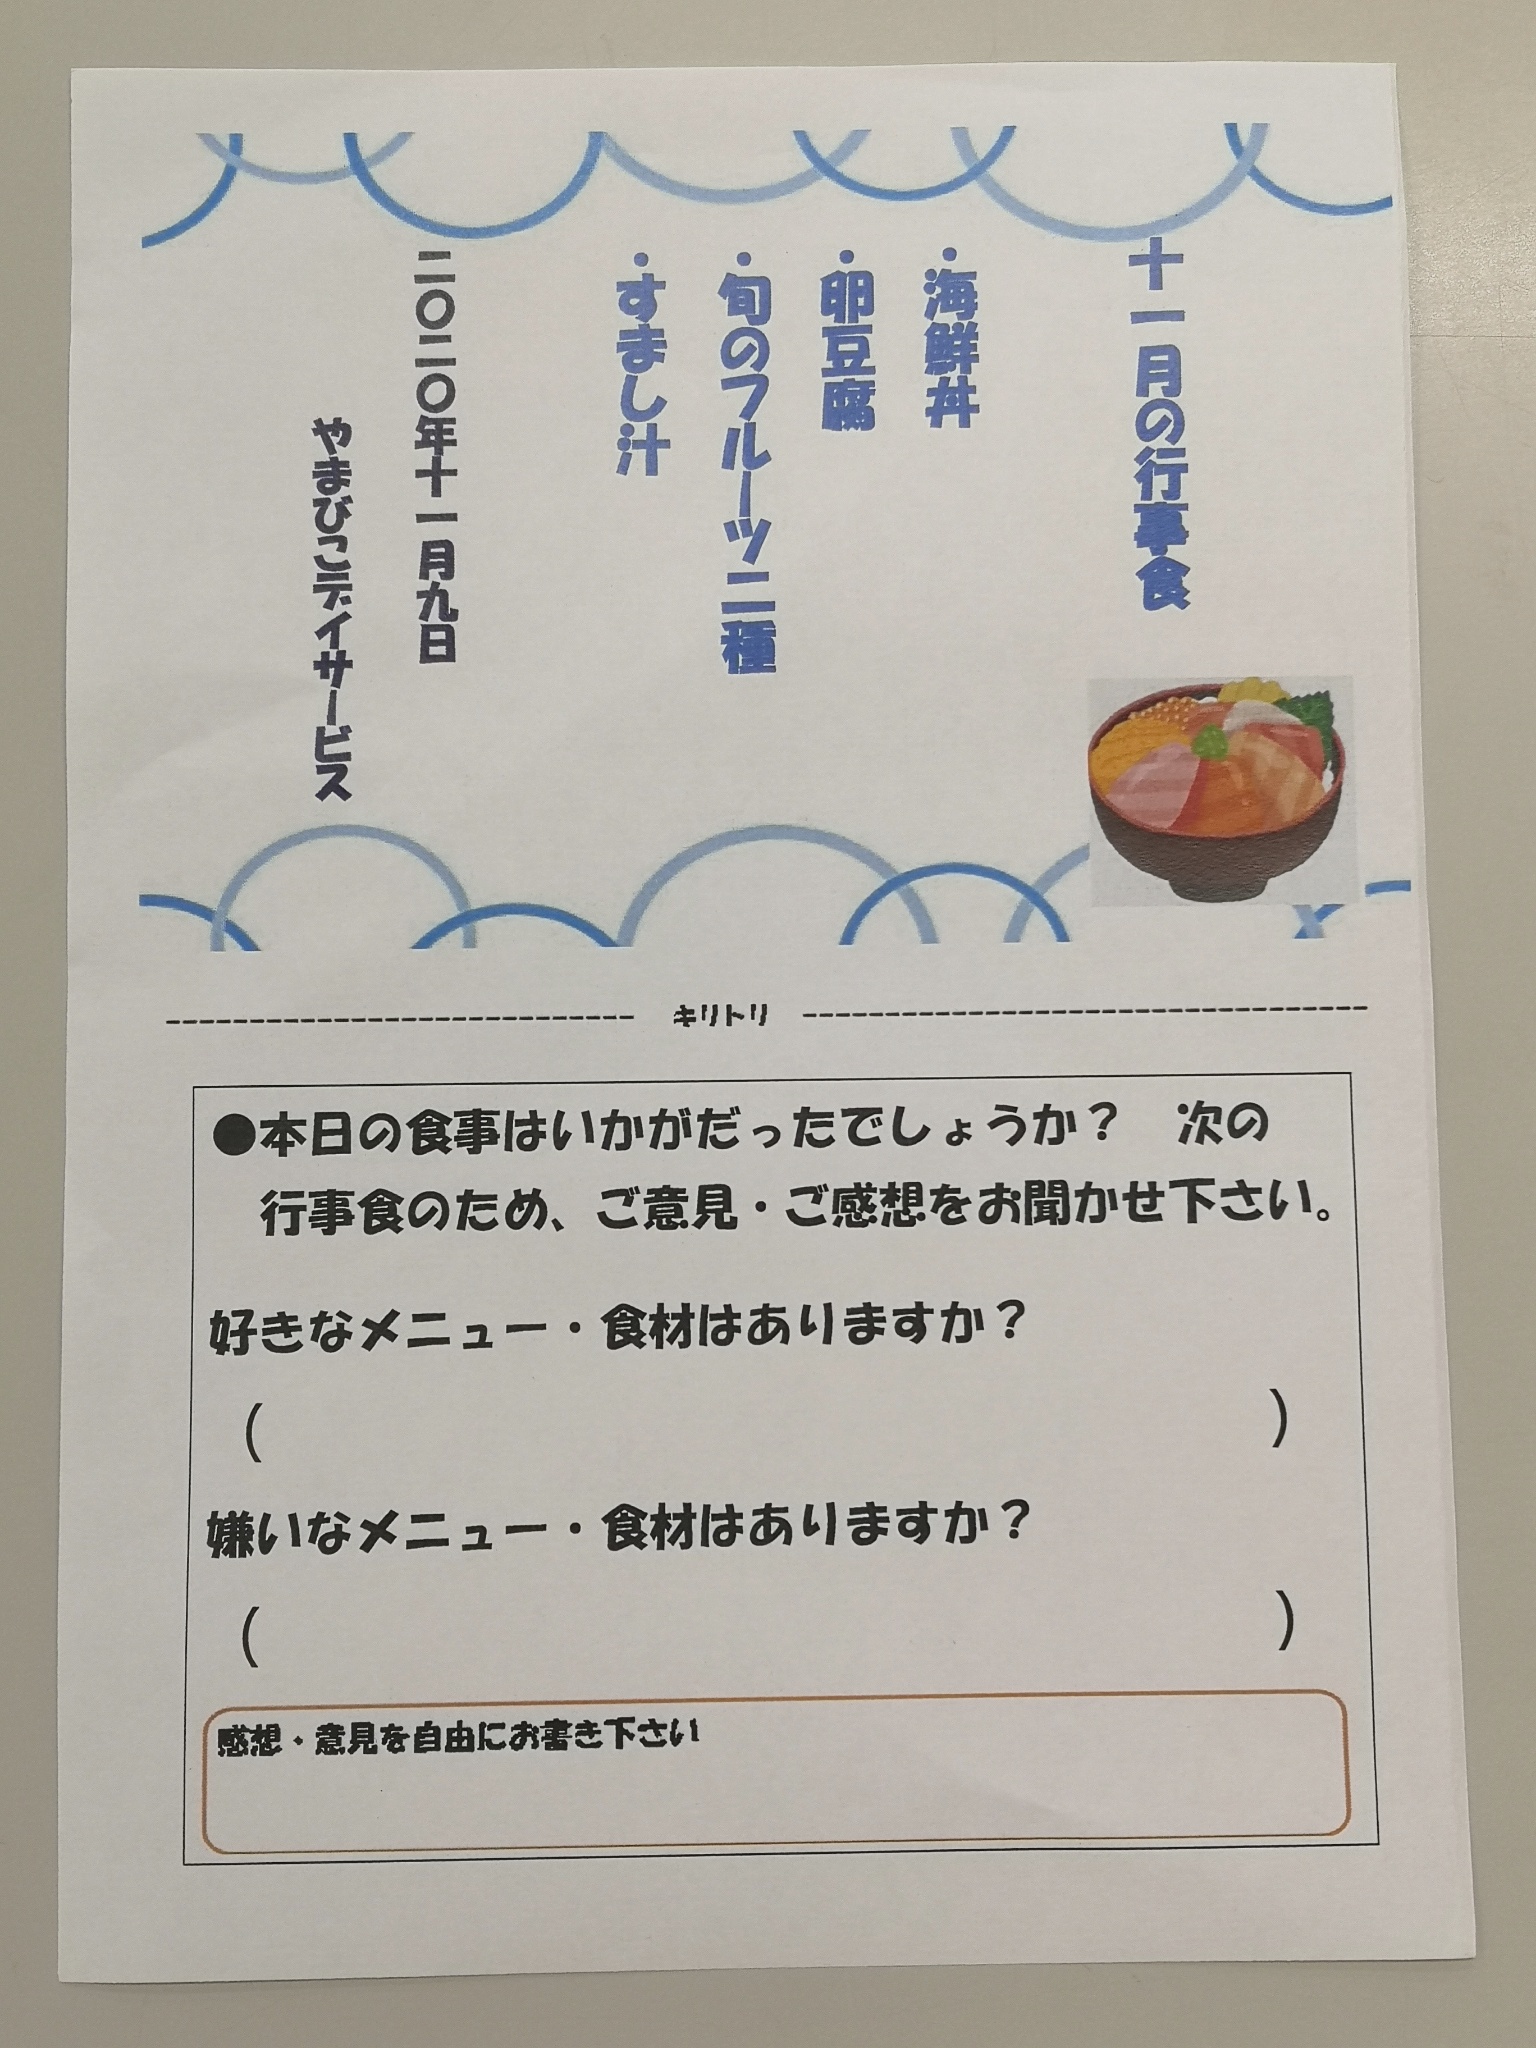 十一月の行事食
・海鮮丼
・卵豆腐
・旬のフルーツ二種
・すまし汁
二〇二〇年十一月九日
やまびこデイサービス
キリトリ
●本日の食事はいかがだったでしょうか？　次の
行事食のため、ご意見・ご感想をお聞かせ下さい。
好きなメニュー・食材はありますか？
(　　　)
嫌いなメニュー・食材はありますか？
(　　　)
感想・意見を自由にお書き下さい